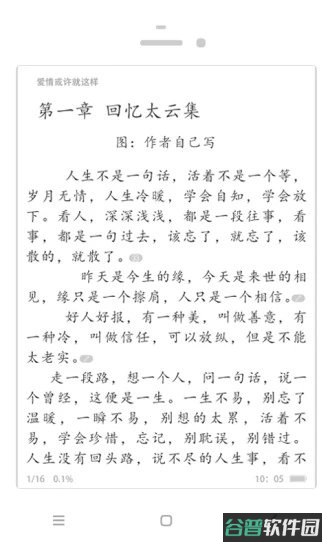 爱情或许就这样
第一章 回忆太云集
图：作者自己写
人生不是一句话，活着不是一个等，
岁月无情，人生冷暖，学会自知，学会放
下。看人，深深浅浅，都是一段往事，看
事，都是一句过去，该忘了，就忘了，该
散的，就散了。
昨天是今生的缘，今天是来世的相
见，缘只是一个擦肩，人只是一个相信。
好人好报，有一种美，叫做善意，有
一种冷，叫做信任，可以放纵，但是不能
太老实。
走一段路，想一个人，问一句话，说一
个曾经，这便是一生。一生不易，别忘了
温暖，一瞬不易，别想的太累，活着不
易，学会珍惜，忘记，别耽误，别错过。
人生没有回头路，说不尽的人生事，看不
1/16 0.1% 10：05
谷普软件园